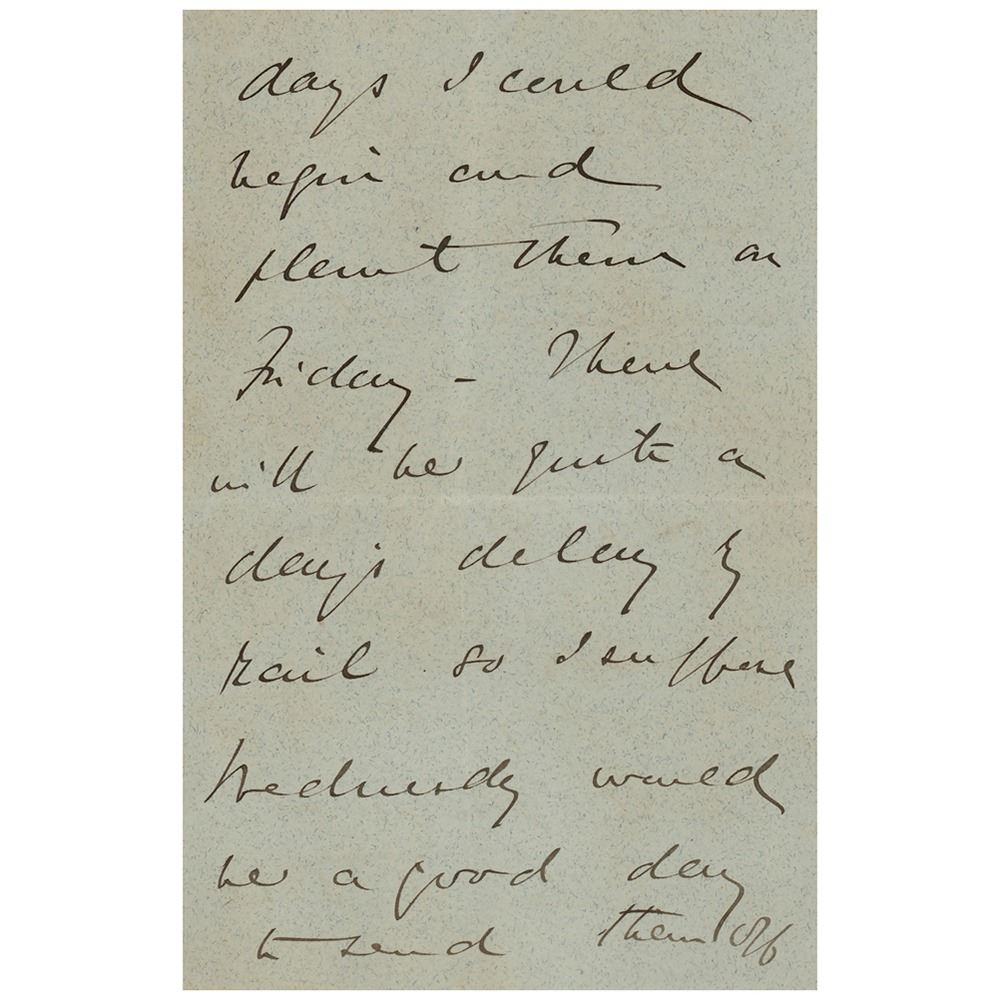 days I could
begin and
plant them on
Friday - There
will be quite a
day's delay by
rail so I suppose
Wednesday would
be a good day
to send them off